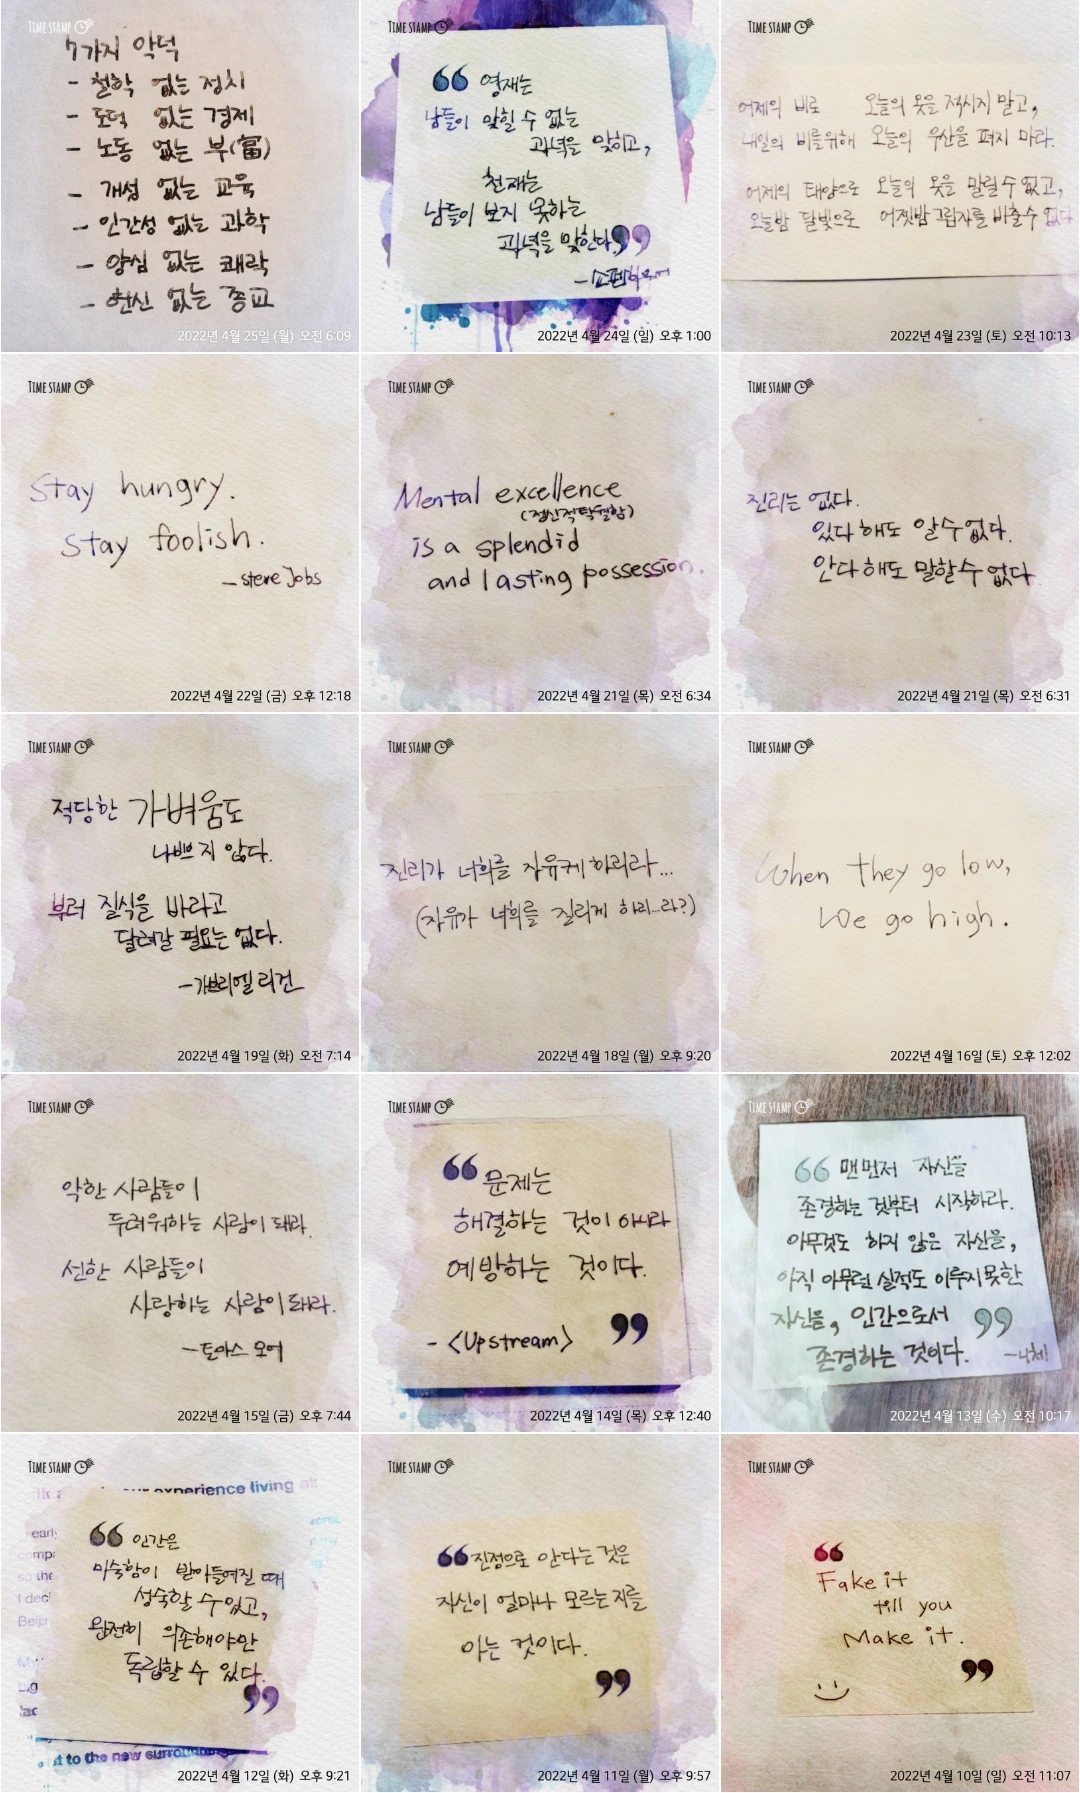 TIME STAMP
7가지 악덕
- 철학 없는 정치
- 도덕 없는 경제
- 노동 없는 부(富)
- 개성 없는 교육
- 인간성 없는 과학
- 양심 없는 쾌락
- 헌신 없는 종교
2022년 4월 25일 (월) 오전 6:09
TIME STAMP
“ 영재는
남들이 맞힐 수 없는
과녁을 맞히고,
천재는
남들이 보지 못하는
과녁을 맞힌다”
- 쇼펜하우어
2022년 4월 24일 (일) 오후 1:00
TIME STAMP
어제의 비로 오늘의 옷을 적시지 말고,
내일의 비를위해 오늘의 우산을 펴지 마라.
어제의 태양으로 오늘의 옷을 말릴 수 없고,
오늘밤 달빛으로 어젯밤 그림자를 비출수 없다
2022년 4월 23일 (토) 오전 10:13
TIME STAMP
Stay hungry.
Stay foolish.
- steve Jobs
2022년 4월 22일 (금) 오후 12:18
TIME STAMP
Mental excellence
(정신적탁월함)
is a splendid
and lasting possession.
2022년 4월 21일 (목) 오전 6:34
TIME STAMP
진리는 없다.
있다 해도 알 수 없다.
안다 해도 말할 수 없다
2022년 4월 21일 (목) 오전 6:31
TIME STAMP
적당한 가벼움도
나쁘지 않다.
부러 질식을 바라고
달려갈 필요는 없다.
- 가브리엘 리건
2022년 4월 19일 (화) 오전 7:14
TIME STAMP
진리가 너희를 자유케 하리라...
(자유가 너희를 질리게 하리...라?)
2022년 4월 18일 (월) 오후 9:20
TIME STAMP
When they go low,
We go high.
2022년 4월 16일 (토) 오후 12:02
TIME STAMP
악한 사람들이
두려워하는 사람이 돼라.
선한 사람들이
사랑하는 사람이 돼라.
- 토마스 모어
2022년 4월 15일 (금) 오후 7:44
TIME STAMP
“ 문제는
해결하는 것이 아니라
예방하는 것이다.
”
- <Upstream>
2022년 4월 14일 (목) 오후 12:40
TIME STAMP
“ 맨먼저 자신을
존경하는 것부터 시작하라.
아무것도 하지 않은 자신을,
아직 아무런 실적도 이루지 못한
자신을, 인간으로서 ”
존경하는 것이다. - 니체
2022년 4월 13일 (수) 오전 10:17
TIME STAMP
our experience living
“ 인간은
미숙함이 받아들여질 때
성숙할 수 있고,
완전히 의존해야만
독립할 수 있다.
”
to the new
2022년 4월 12일 (화) 오후 9:21
TIME STAMP
“ 진정으로 안다는 것은
자신이 얼마나 모르는 지를
아는 것이다.
”
2022년 4월 11일 (월) 오후 9:57
TIME STAMP
“
Fake it
till you
Make it.
”
2022년 4월 10일 (일) 오전 11:07